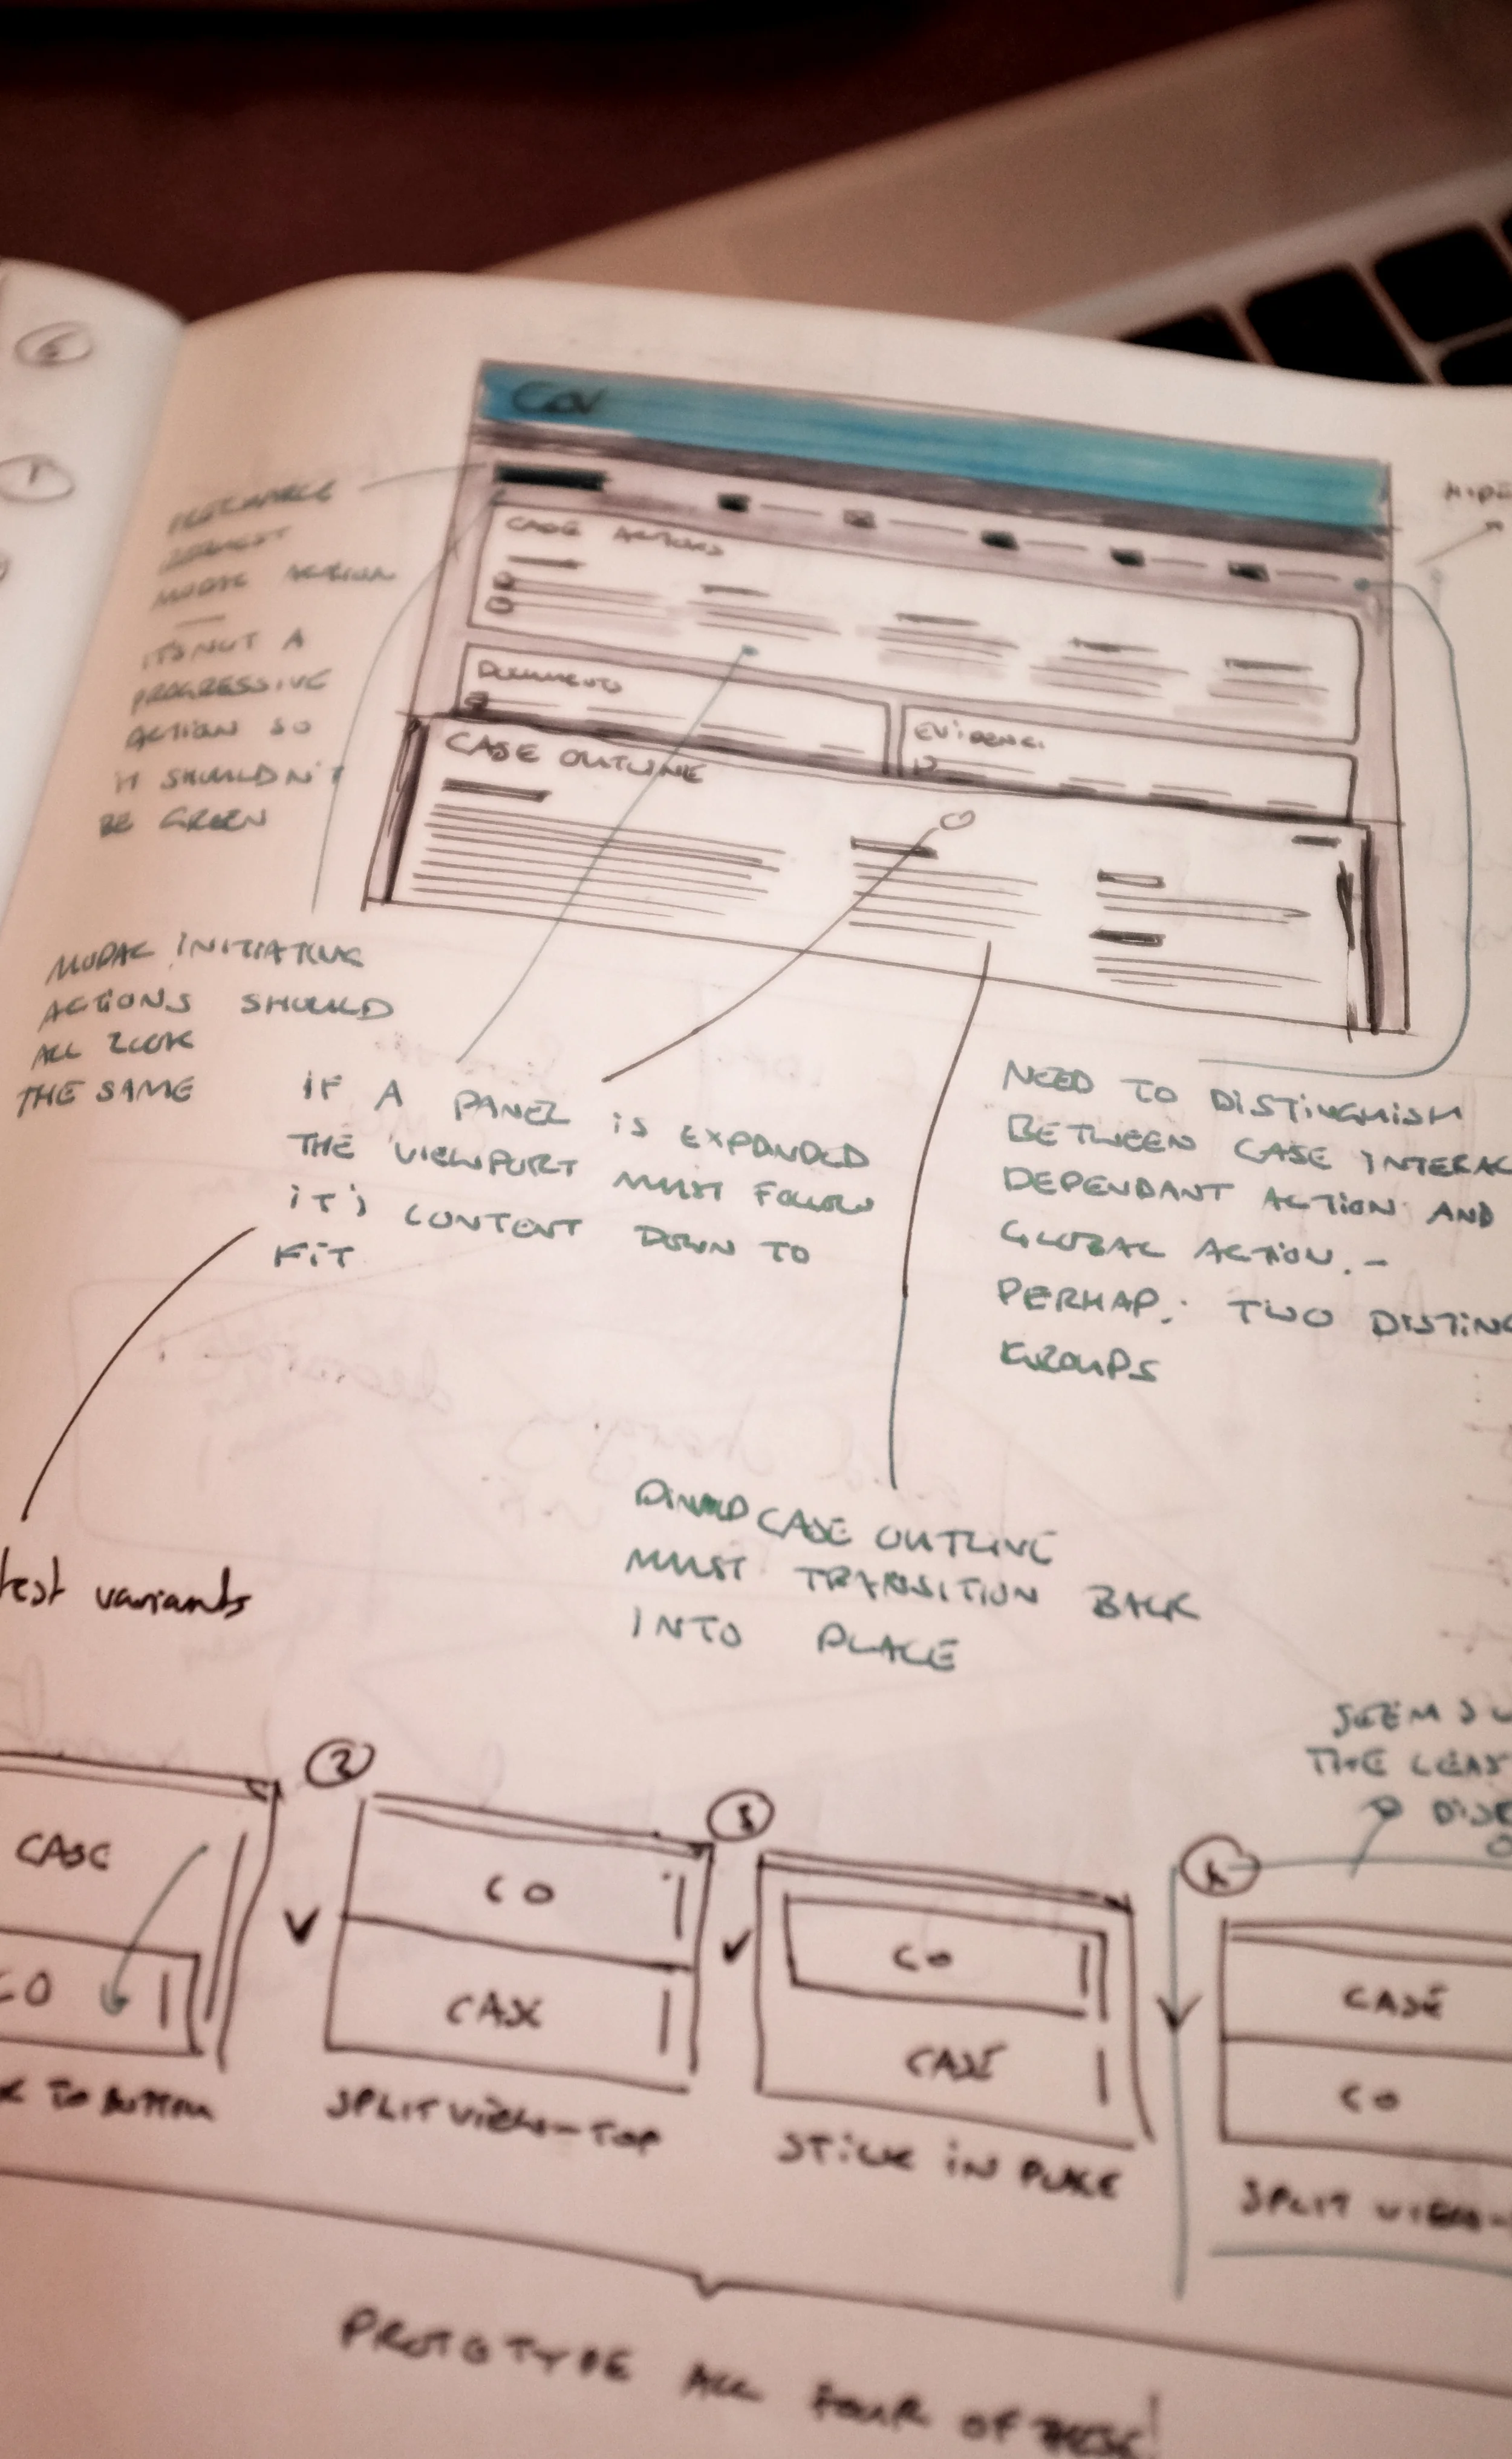 CASE ACTIONS
DOCUMENTS
EVIDENCE
CASE OUTLINE
MODAL ACTION
—
IT'S NOT A
PROGRESSIVE
ACTION SO
IT SHOULDN'T
BE GREEN
MODAL INITIATING
ACTIONS SHOULD
ALL LOOK
THE SAME
IF A PANEL IS EXPANDED
THE VIEWPORT MUST FOLLOW
IT'S CONTENT DOWN TO
FIT
NEED TO DISTINGUISH
BETWEEN CASE INTERAC
DEPENDANT ACTION AND
GLOBAL ACTION. -
PERHAPS TWO DISTINC
GROUPS
CASE OUTLINE
MUST TRANSITION BACK
INTO PLACE
test variants
SEEMS
THE LEAS
CASE
CO
TO BOTTOM
2
CO
CASE
SPLIT VIEW-TOP
3
CO
CASE
STICK IN PLACE
CASE
CO
SPLIT VIEW-
PROTOTYPE ALL FOUR OF THESE!